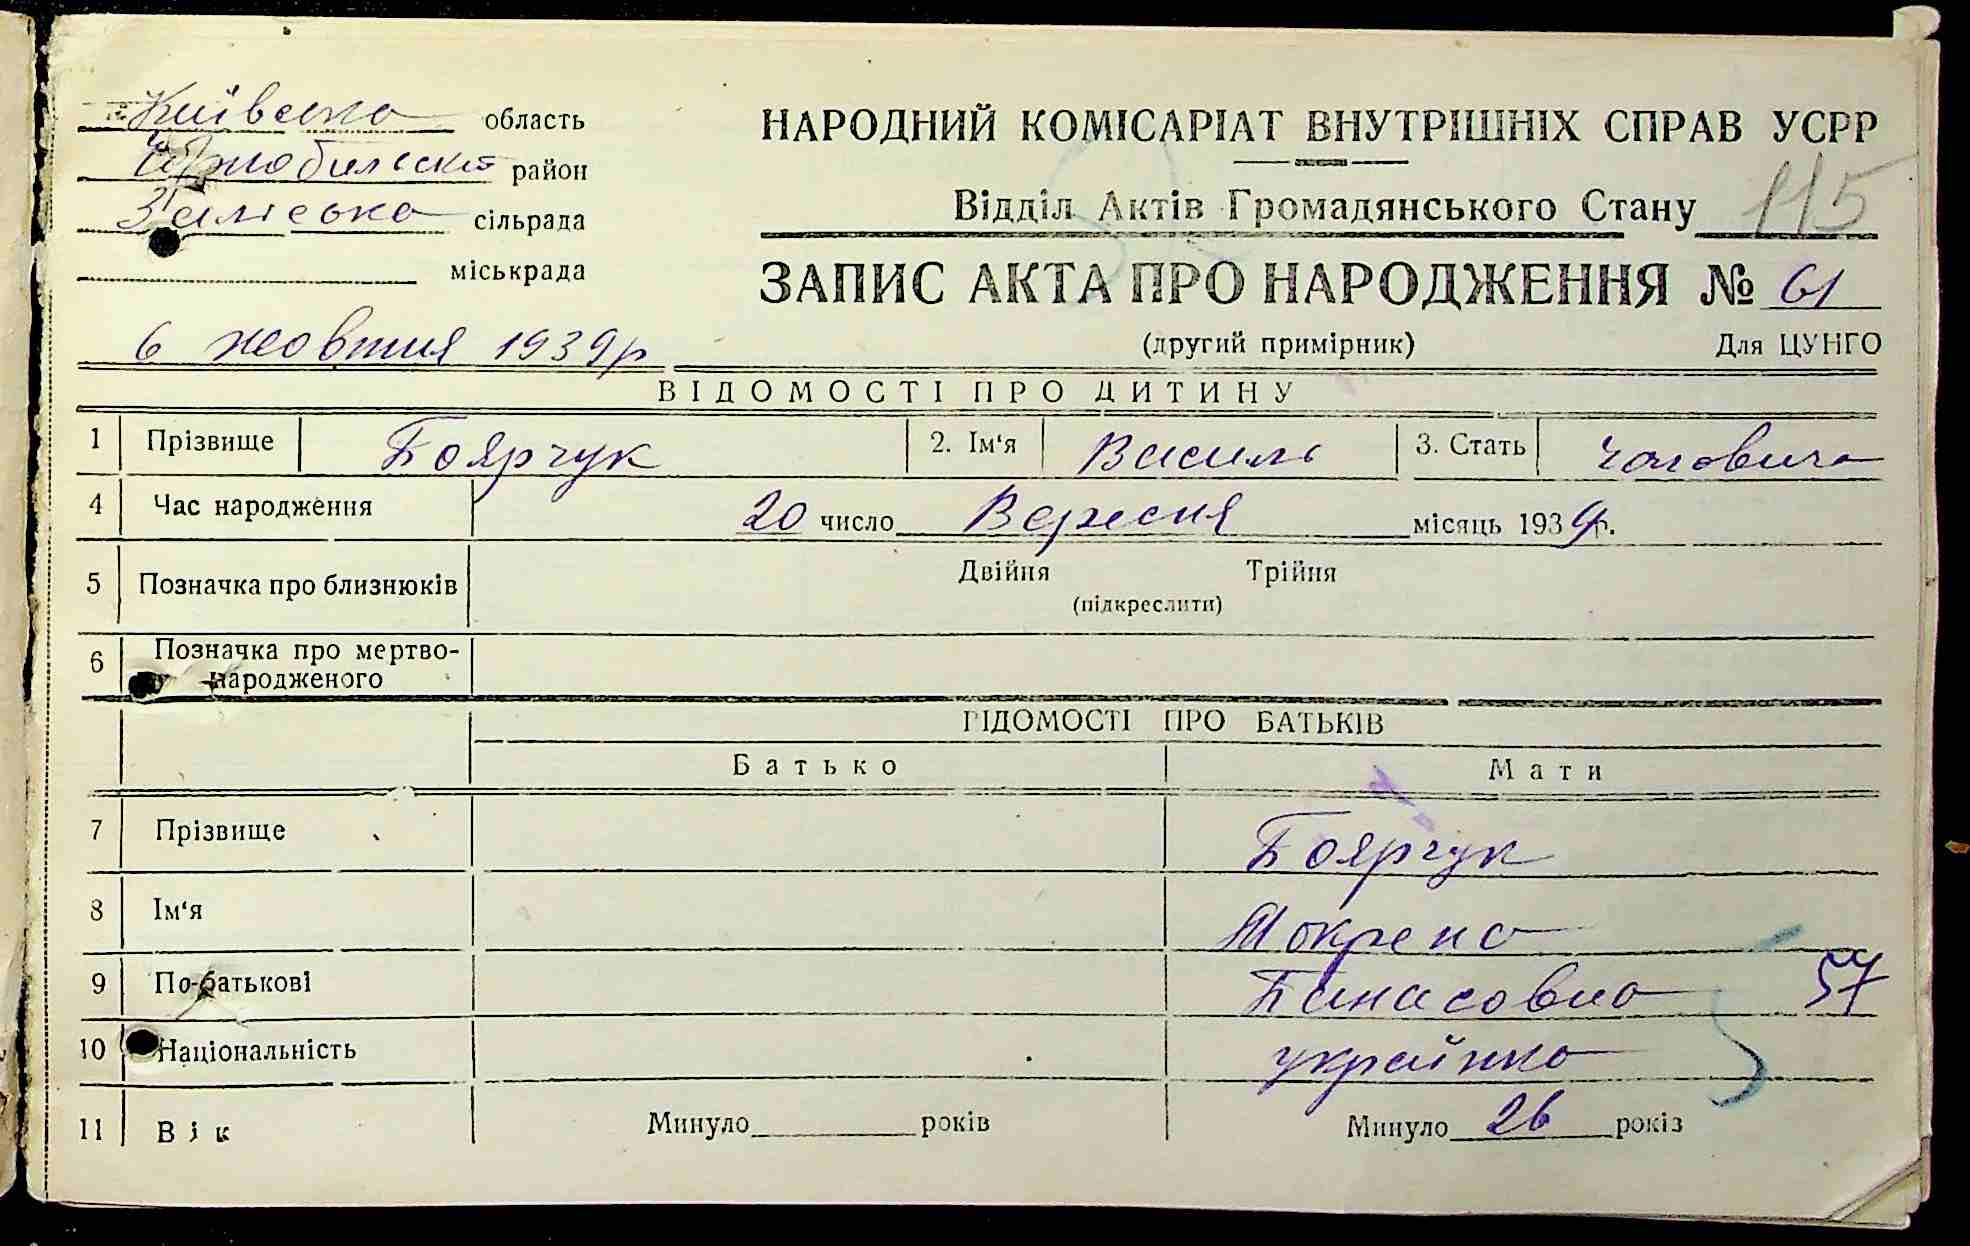 Київська область
Чорнобильский район
Заліська сільрада
міськрада
6 жовтня 1939р
НАРОДНИЙ КОМІСАРІАТ ВНУТРІШНІХ СПРАВ УСРР
Відділ Актів Громадянського Стану 115
ЗАПИС АКТА ПРО НАРОДЖЕННЯ № 61
(другий примірник) Для ЦУНГО
ВІДОМОСТІ ПРО ДИТИНУ
1 Прізвище Боярчук 2. Ім'я Василь 3. Стать чоловіча
4 Час народження 20 число Вересня місяць 1939р.
5 Позначка про близнюків Двійня Трійня
(підкреслити)
6 Позначка про мертво-
народженого
ВІДОМОСТІ ПРО БАТЬКІВ
Батько Мати
7 Прізвище Боярчук
8 Ім'я Мокрена
9 По-батькові Панасовна 57
10 Національність українка
11 Вік Минуло років Минуло 26 років